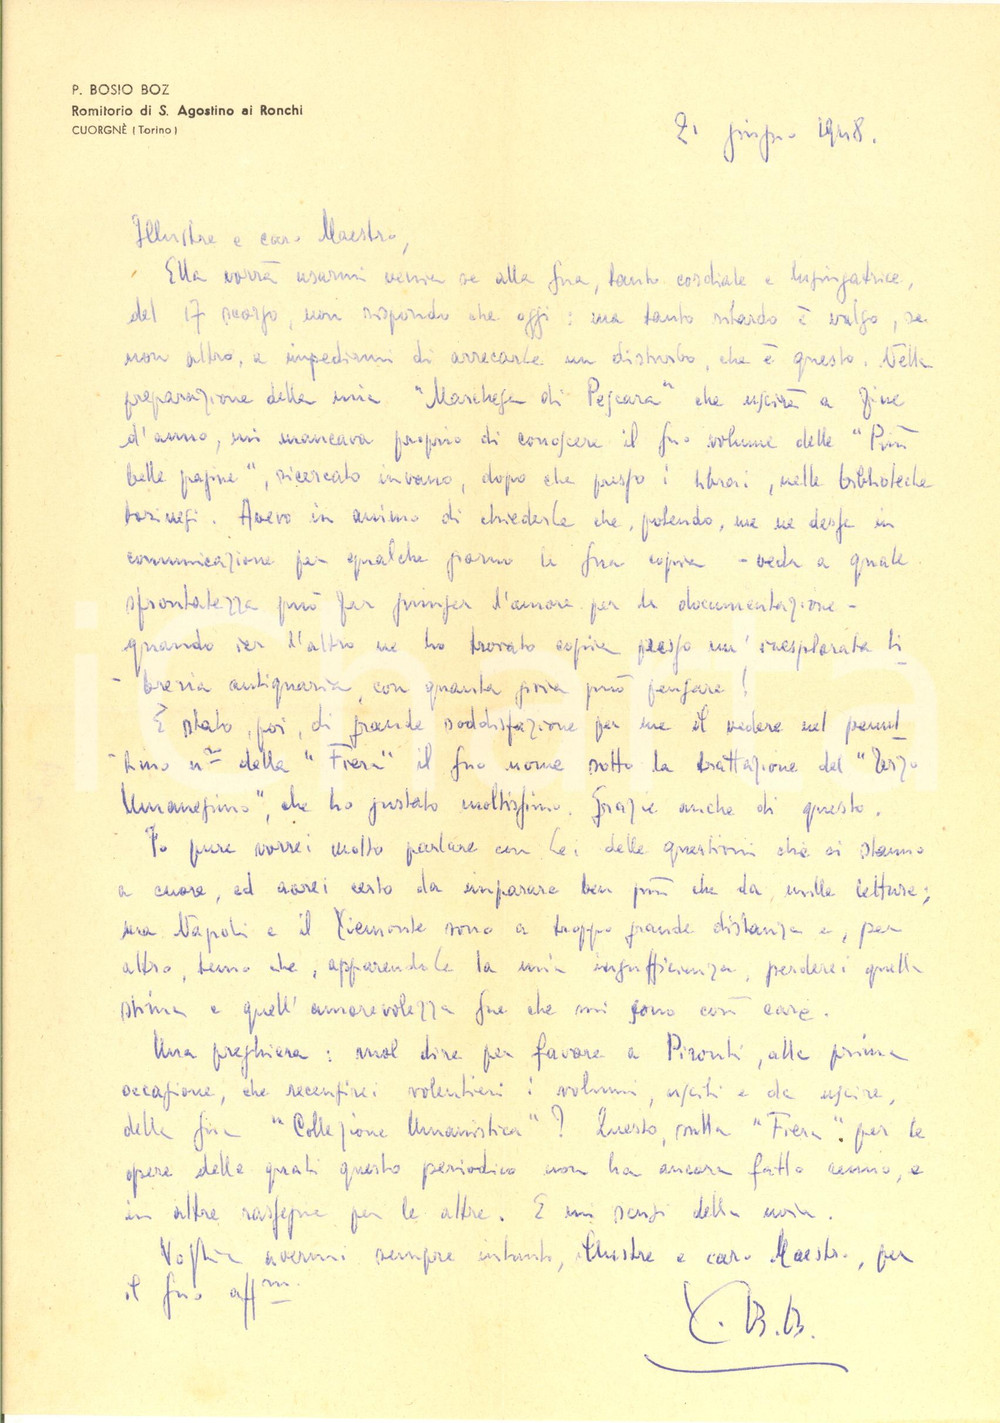 P. BOSIO BOZ
Romitorio di S. Agostino ai Ronchi
CUORGNÈ (Torino)
2 giugno 1948.
Illustre e caro Maestro,
Ella vorrà usarmi venia se alla Sua, tanto cordiale e lusingatrice,
del 17 scorso, non rispondo che oggi: ma tanto ritardo è valso, se
non altro, a impedirmi di arrecarLe un disturbo, che è questo. Nella
preparazione della mia "Marchesa di Pescara" che uscirà a fine
d'anno, mi mancava proprio di conoscere il Suo volume delle "Più
belle pagine", ricercato invano, dopo che presso i librai, nelle biblioteche
torinesi. Avevo in animo di chiederLe che, potendo, me ne desse in
comunicazione per qualche giorno la Sua copia - veda a quale
sfrontatezza può far giunger l'amore per la documentazione -
quando ier l'altro ne ho trovato copia presso un' inesplorata li
- breria antiquaria, con quanta gioia può pensare!
È stato, poi, di grande soddisfazione per me il vedere nel penul
- timo nro della "Fiera" il Suo nome sotto la trattazione del "Terzo
Umanesimo", che ho gustato moltissimo. Grazie anche di questo.
Io pure vorrei molto parlare con Lei delle questioni che ci stanno
a cuore, ed avrei certo da imparare ben più che da mille letture;
ma Napoli e il Piemonte sono a troppo grande distanza e, per
altro, temo che, apparendoLe la mia insufficienza, perderei quella
stima e quell'amorevolezza Sue che mi sono così care.
Una preghiera: vuol dire per favore a Pironti, alla prima
occasione, che recensirei volentieri i volumi, usciti e da uscire,
della Sua "Collezione Umanistica"? Questo, sulla "Fiera" per le
opere delle quali questo periodico non ha ancora fatto cenno, e
in altre rassegne per le altre. E mi scusi della noia.
Voglia avermi sempre intanto, Illustre e caro Maestro, per
il Suo affmo
P. B. B.